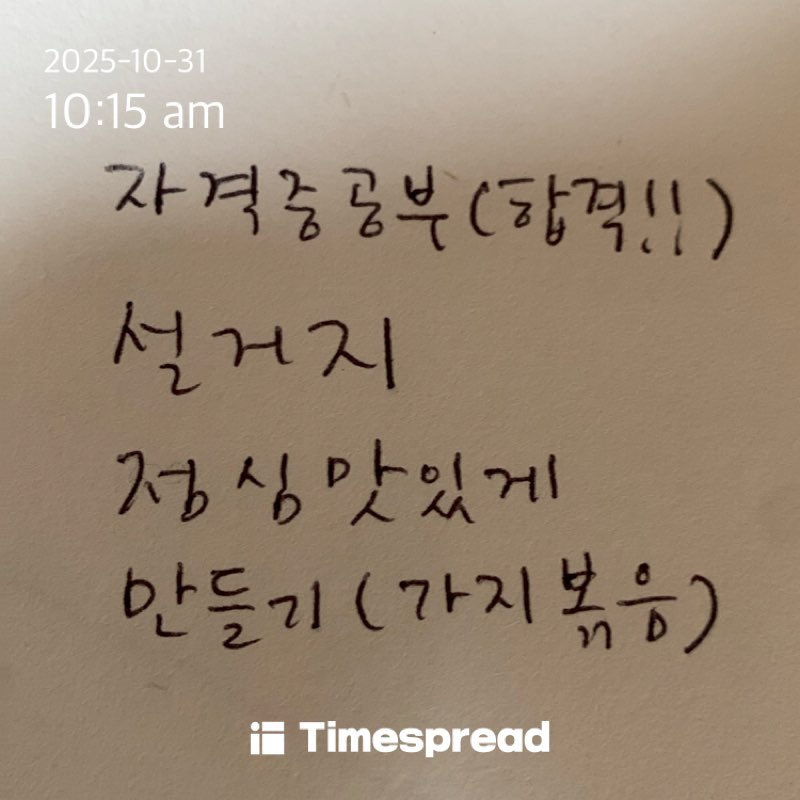 2025-10-31
10:15 am
자격증공부(합격!!)
설거지
점심맛있게
만들기(가지볶음)
Timespread